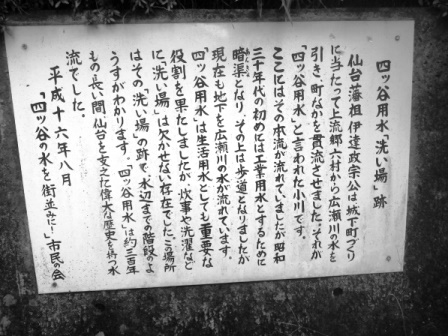 四ツ谷用水「洗い場」跡
仙台藩祖伊達政宗公は城下町づくり
に当たって上流郷六村から広瀬川の水を
引き、町なかを貫流させました。それが
「四ツ谷用水」と言われた小川です。
ここにはその本流が流れていましたが昭和
三十年代の初めには工業用水とするために
暗渠となり、その上は歩道となりましたが
あんきょ
現在も地下を広瀬川の水が流れています。
「四ツ谷用水」は生活用水としても重要な
役割を果たしましたが、炊事や洗濯など
に「洗い場」は欠かせない存在でした。この場所
はその「洗い場」の跡で、水辺までの階段のよ
うすがわかります。「四ツ谷用水」は約三百年
もの長い間仙台を支えた偉大な歴史を持つ水
流でした。
平成十六年八月
「四ツ谷の水を街並みに!」市民の会